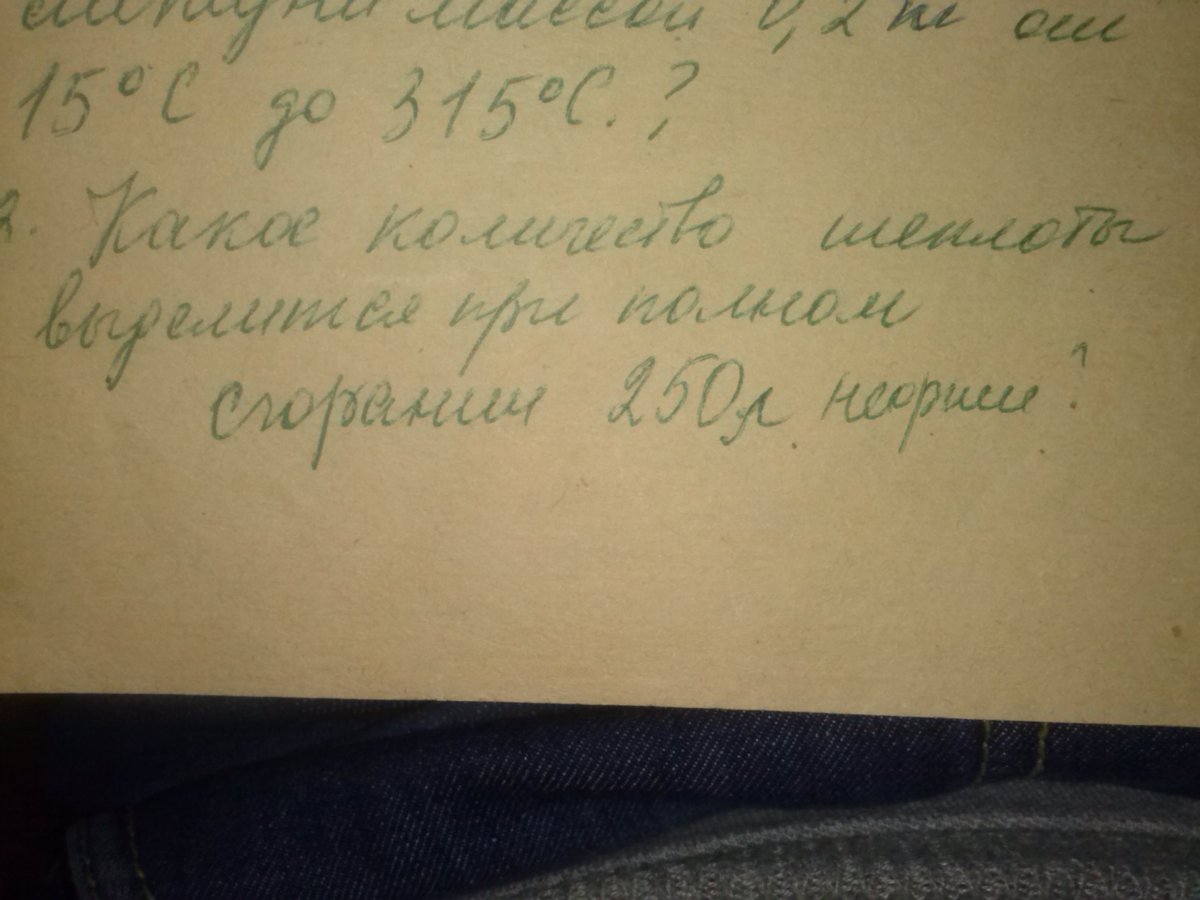 латуни массой 0,2 кг от
15°C до 315°C.?
2. Какое количество теплоты
выделится при полном
сгорании 250л нефти?